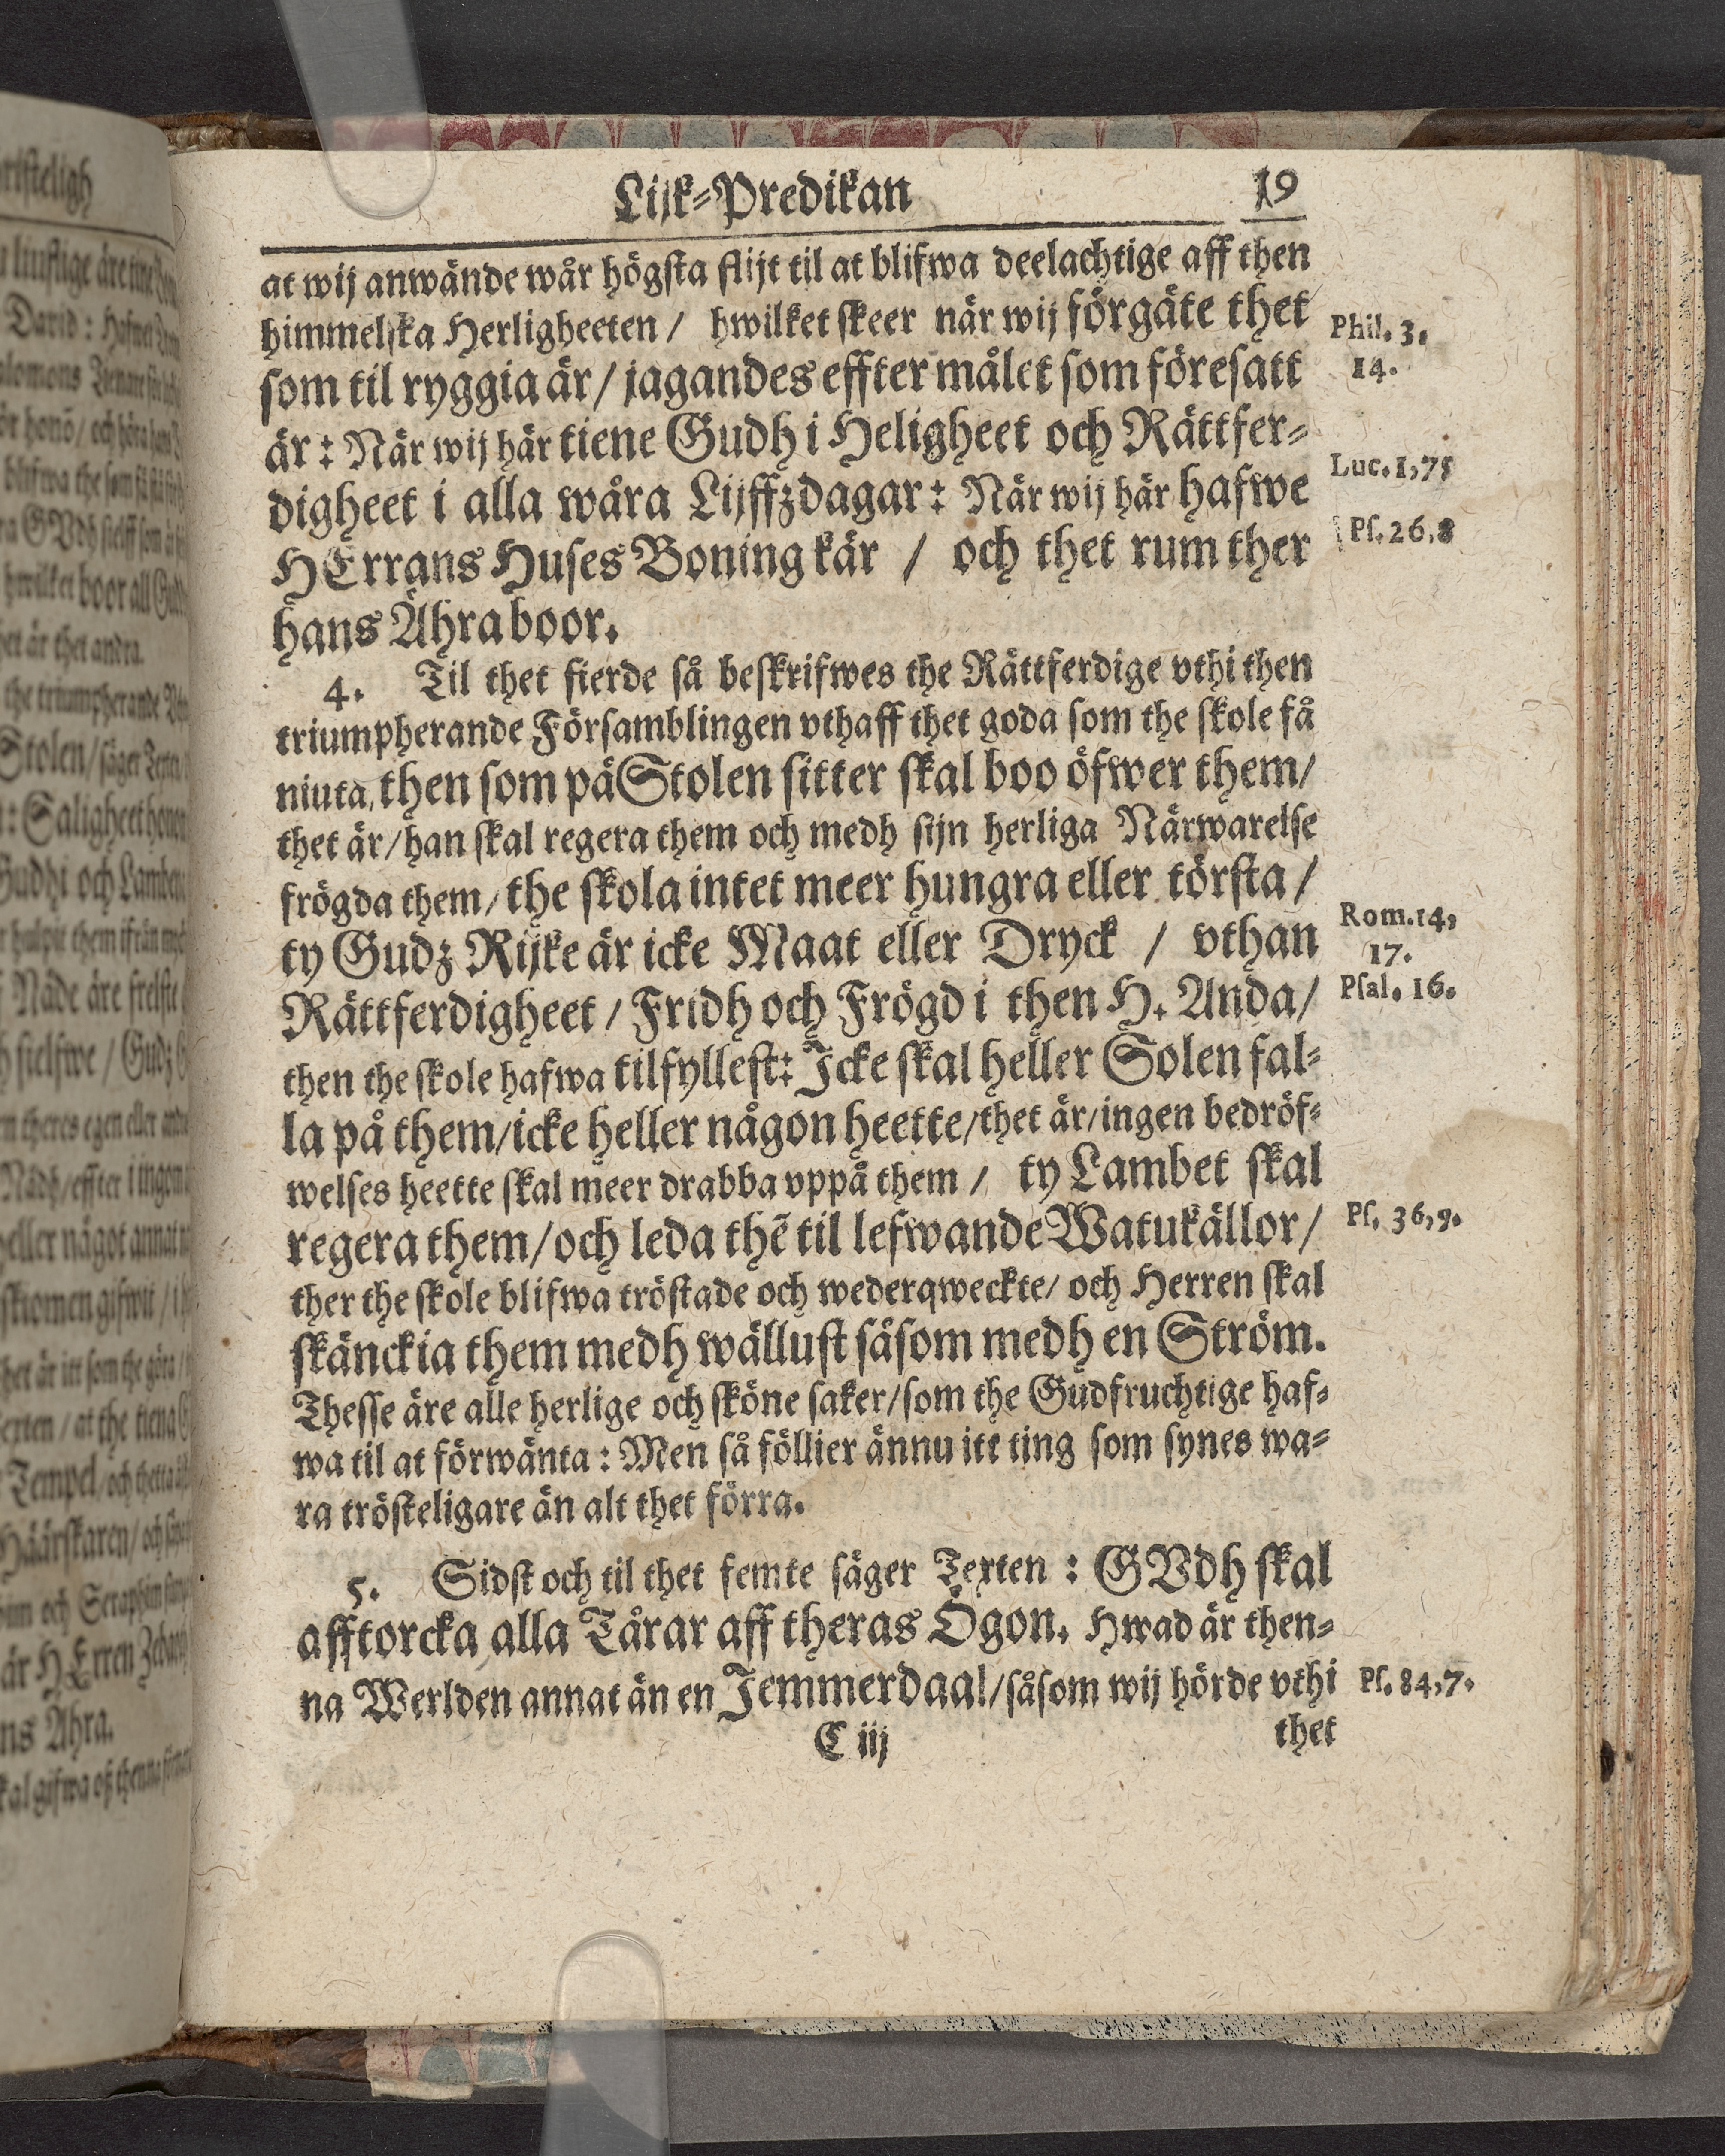 Lijk-Predikan 19
at wij anwände wår högsta flijt til at blifwa deelachtige aff then
himmelska Herligheeten / hwilket skeer när wij förgäte thet
Phil. 3.
14.
som til ryggia är / jagandes effter målet som föresatt
är: När wij här tiene Gudh i Heligheet och Rättfer-
Luc. 1, 75
digheet i alla wåra Lijffzdagar: När wij här hafwe
Ps. 26, 8
HErrans Huses Boning kär / och thet rum ther
hans Ähra boor.
4. Til thet fierde så beskrifwes the Rättferdige vthi then
triumpherande Församblingen vthaff thet goda som the skole få
niuta, then som på Stolen sitter skal boo öfwer them /
thet är / han skal regera them och medh sijn herliga Närwarelse
frögda them / the skola intet meer hungra eller törsta /
Rom. 14,
17.
ty Gudz Rijke är icke Maat eller Dryck / vthan
Rättferdigheet / Fridh och Frögd i then H. Anda /
Psal. 16.
then the skole hafwa tilfyllest: Icke skal heller Solen fal-
la på them / icke heller någon heette / thet är / ingen bedröf-
welses heette skal meer drabba vppå them / ty Lambet skal
regera them / och leda thē til lefwande Watukällor /
Ps. 36, 9.
ther the skole blifwa tröstade och wederqweckte / och Herren skal
skänckia them medh wällust såsom medh en Ström.
Thesse äre alle herlige och sköne saker / som the Gudfruchtige haf-
wa til at förwänta: Men så föllier ännu itt ting som synes wa-
ra trösteligare än alt thet förra.
5. Sidst och til thet femte säger Texten: GVdh skal
afftorcka alla Tårar aff theras Ögon. Hwad är then-
na Werlden annat än en Jemmerdaal / såsom wij hörde vthi
Ps. 84, 7.
C iij thet